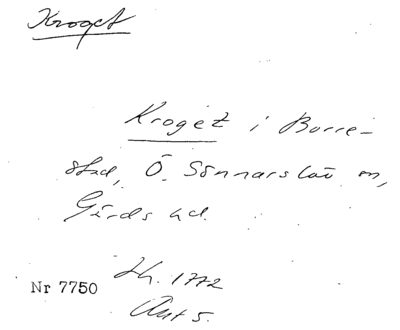 Kroget
Kroget i Borre-
stad, Ö. Sönnarslöv sn,
Gärds hd.
Lh. 1772
Nr 7750
Akt 5.